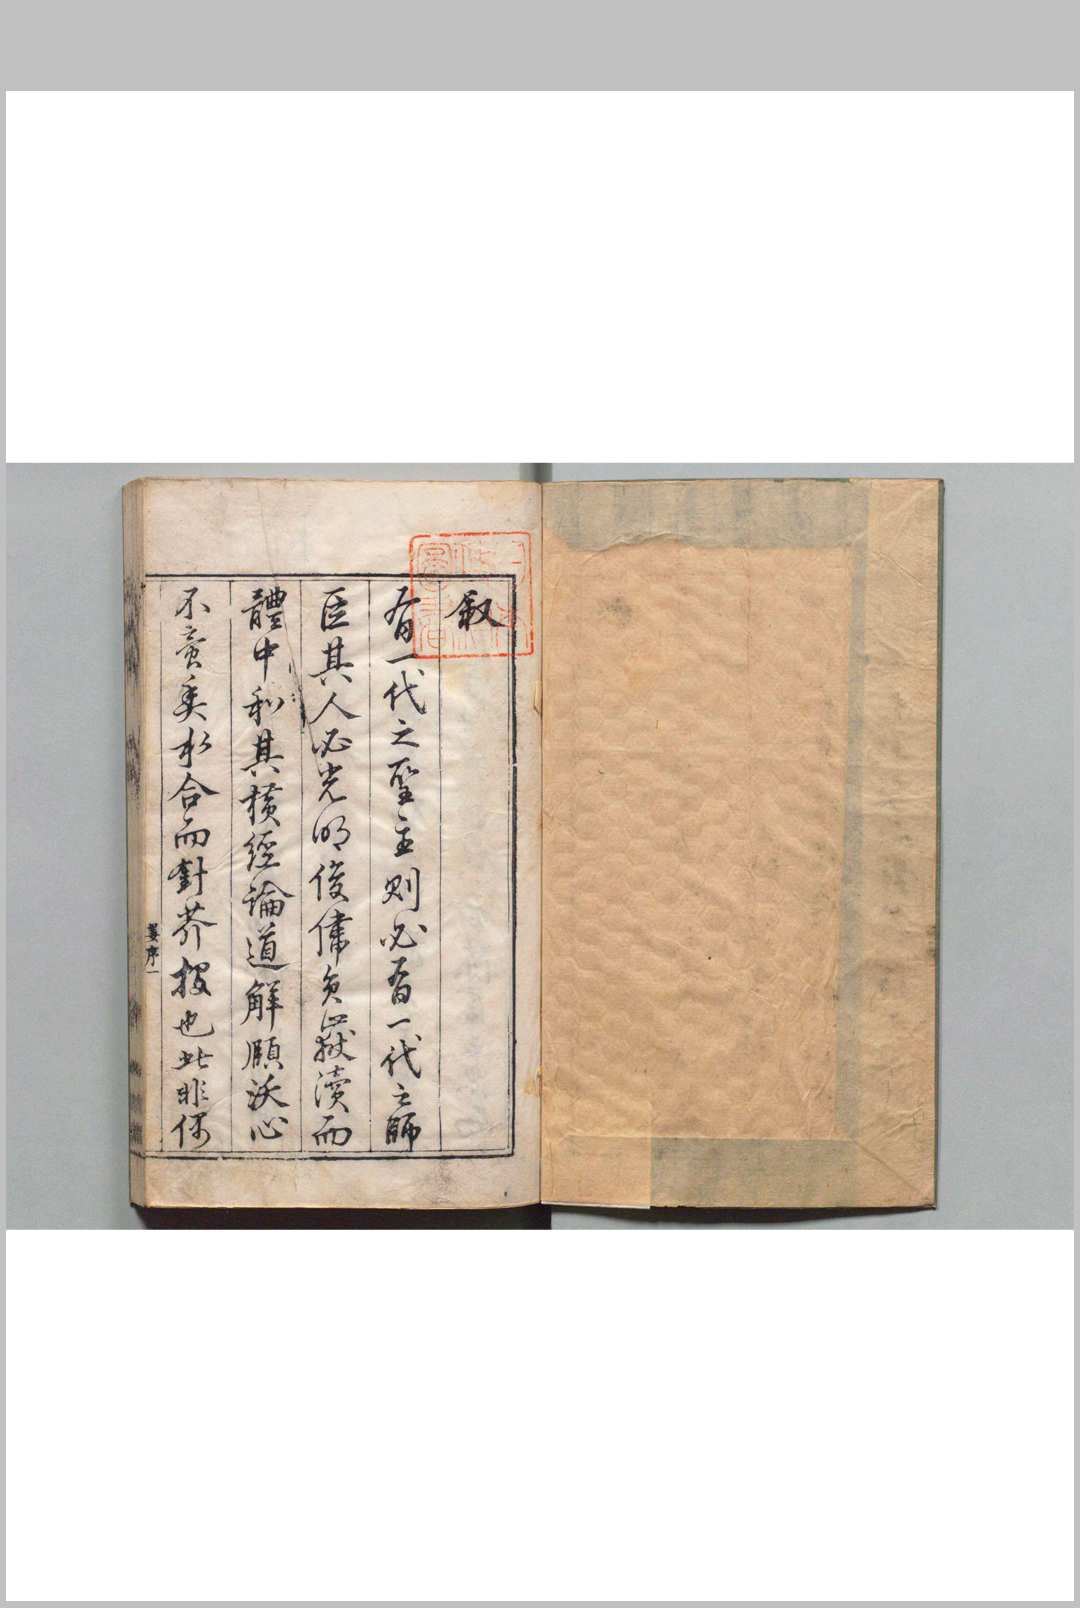 叙
有一代之聖主則必有一代之師
臣其人必光明俊偉負嶽瀆而
體中和其横經論道解頤沃心
不啻魚水合而針芥投也此非偶
序一
日本
政府
圖書